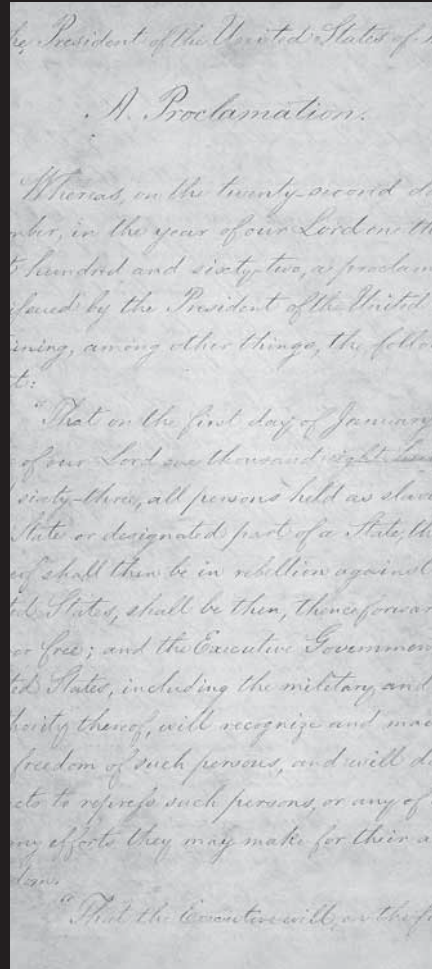 he President of the United States of
A Proclamation.
Whereas, on the twenty-second d
mber, in the year of our Lord one th
t hundred and sixty-two, a proclam
issued by the President of the United
ining, among other things, the follo
t:
"That on the first day of January
of our Lord one thousand eight hun
sixty-three, all persons held as slav
State or designated part of a State, th
eof shall then be in rebellion against
ted States, shall be then, thenceforwar
er free; and the Executive Governmen
ted States, including the military and
hority thereof, will recognize and mai
freedom of such persons, and will do
cts to repress such persons, or any of
ny efforts they may make for their a
dom.
"That the Executive will, on the fi